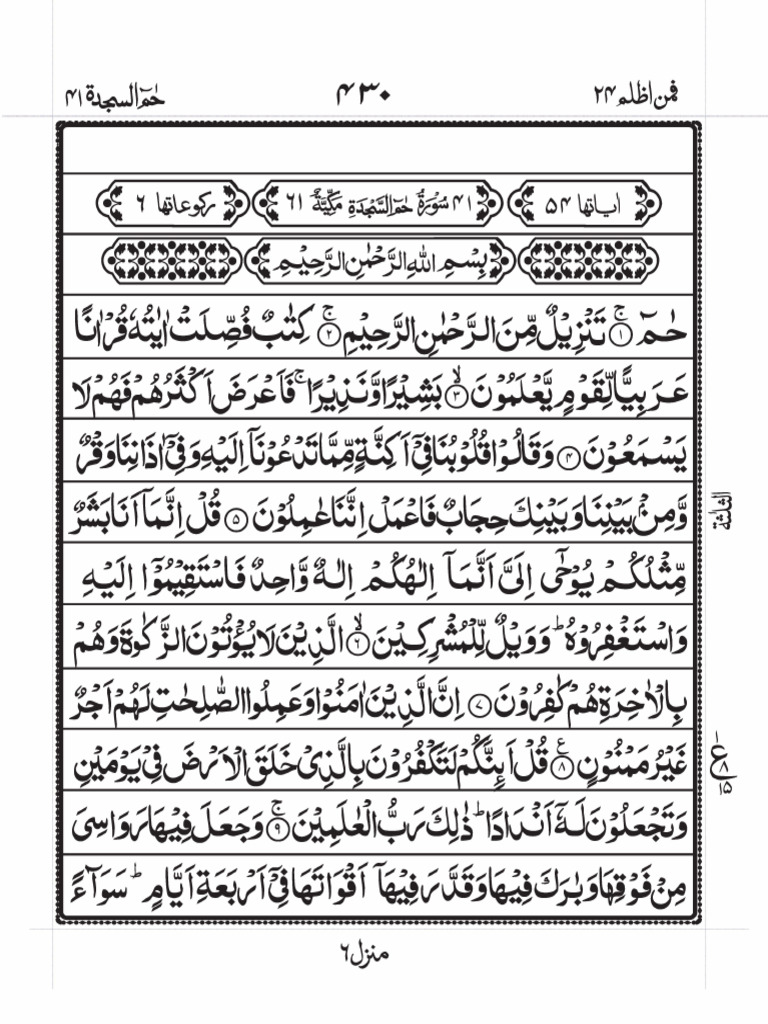 فمن اظلم ۲۴
۴۳۰
حٰمٓ السجدة ۴۱
اٰیاتها ۵۴
۴۱ سُوْرَةُ حٰمٓ السَّجْدَةِ مَكِّیَّةٌ ۶۱
ركوعاتها ۶
بِسْمِ اللهِ الرَّحْمٰنِ الرَّحِیْمِ
حٰمٓ ۚ‏﴿۱﴾ تَنْزِیْلٌ مِّنَ الرَّحْمٰنِ الرَّحِیْمِ ۚ‏﴿۲﴾ كِتٰبٌ فُصِّلَتْ اٰیٰتُهٗ قُرْاٰنًا
عَرَبِیًّا لِّقَوْمٍ یَّعْلَمُوْنَ ۙ‏﴿۳﴾ بَشِیْرًا وَّنَذِیْرًا ۚ فَاَعْرَضَ اَكْثَرُهُمْ فَهُمْ لَا
یَسْمَعُوْنَ ﴿۴﴾ وَقَالُوْا قُلُوْبُنَا فِیْۤ اَكِنَّةٍ مِّمَّا تَدْعُوْنَاۤ اِلَیْهِ وَفِیْۤ اٰذَانِنَا وَقْرٌ
وَّمِنْۢ بَیْنِنَا وَبَیْنِكَ حِجَابٌ فَاعْمَلْ اِنَّنَا عٰمِلُوْنَ ﴿۵﴾ قُلْ اِنَّمَاۤ اَنَا بَشَرٌ
مِّثْلُكُمْ یُوْحٰۤی اِلَیَّ اَنَّمَاۤ اِلٰهُكُمْ اِلٰهٌ وَّاحِدٌ فَاسْتَقِیْمُوْۤا اِلَیْهِ
وَاسْتَغْفِرُوْهُ ؕ وَوَیْلٌ لِّلْمُشْرِكِیْنَ ۙ‏﴿۶﴾ الَّذِیْنَ لَا یُؤْتُوْنَ الزَّكٰوةَ وَهُمْ
بِالْاٰخِرَةِ هُمْ كٰفِرُوْنَ ﴿۷﴾ اِنَّ الَّذِیْنَ اٰمَنُوْا وَعَمِلُوا الصّٰلِحٰتِ لَهُمْ اَجْرٌ
غَیْرُ مَمْنُوْنٍ ﴿۸﴾ ع قُلْ اَئِنَّكُمْ لَتَكْفُرُوْنَ بِالَّذِیْ خَلَقَ الْاَرْضَ فِیْ یَوْمَیْنِ
وَتَجْعَلُوْنَ لَهٗۤ اَنْدَادًا ؕ ذٰلِكَ رَبُّ الْعٰلَمِیْنَ ۚ‏﴿۹﴾ وَجَعَلَ فِیْهَا رَوَاسِیَ
مِنْ فَوْقِهَا وَبٰرَكَ فِیْهَا وَقَدَّرَ فِیْهَاۤ اَقْوَاتَهَا فِیْۤ اَرْبَعَةِ اَیَّامٍ ؕ سَوَآءً
الثلٰثة
۱
ع ۸
۱۵
منزل ۶